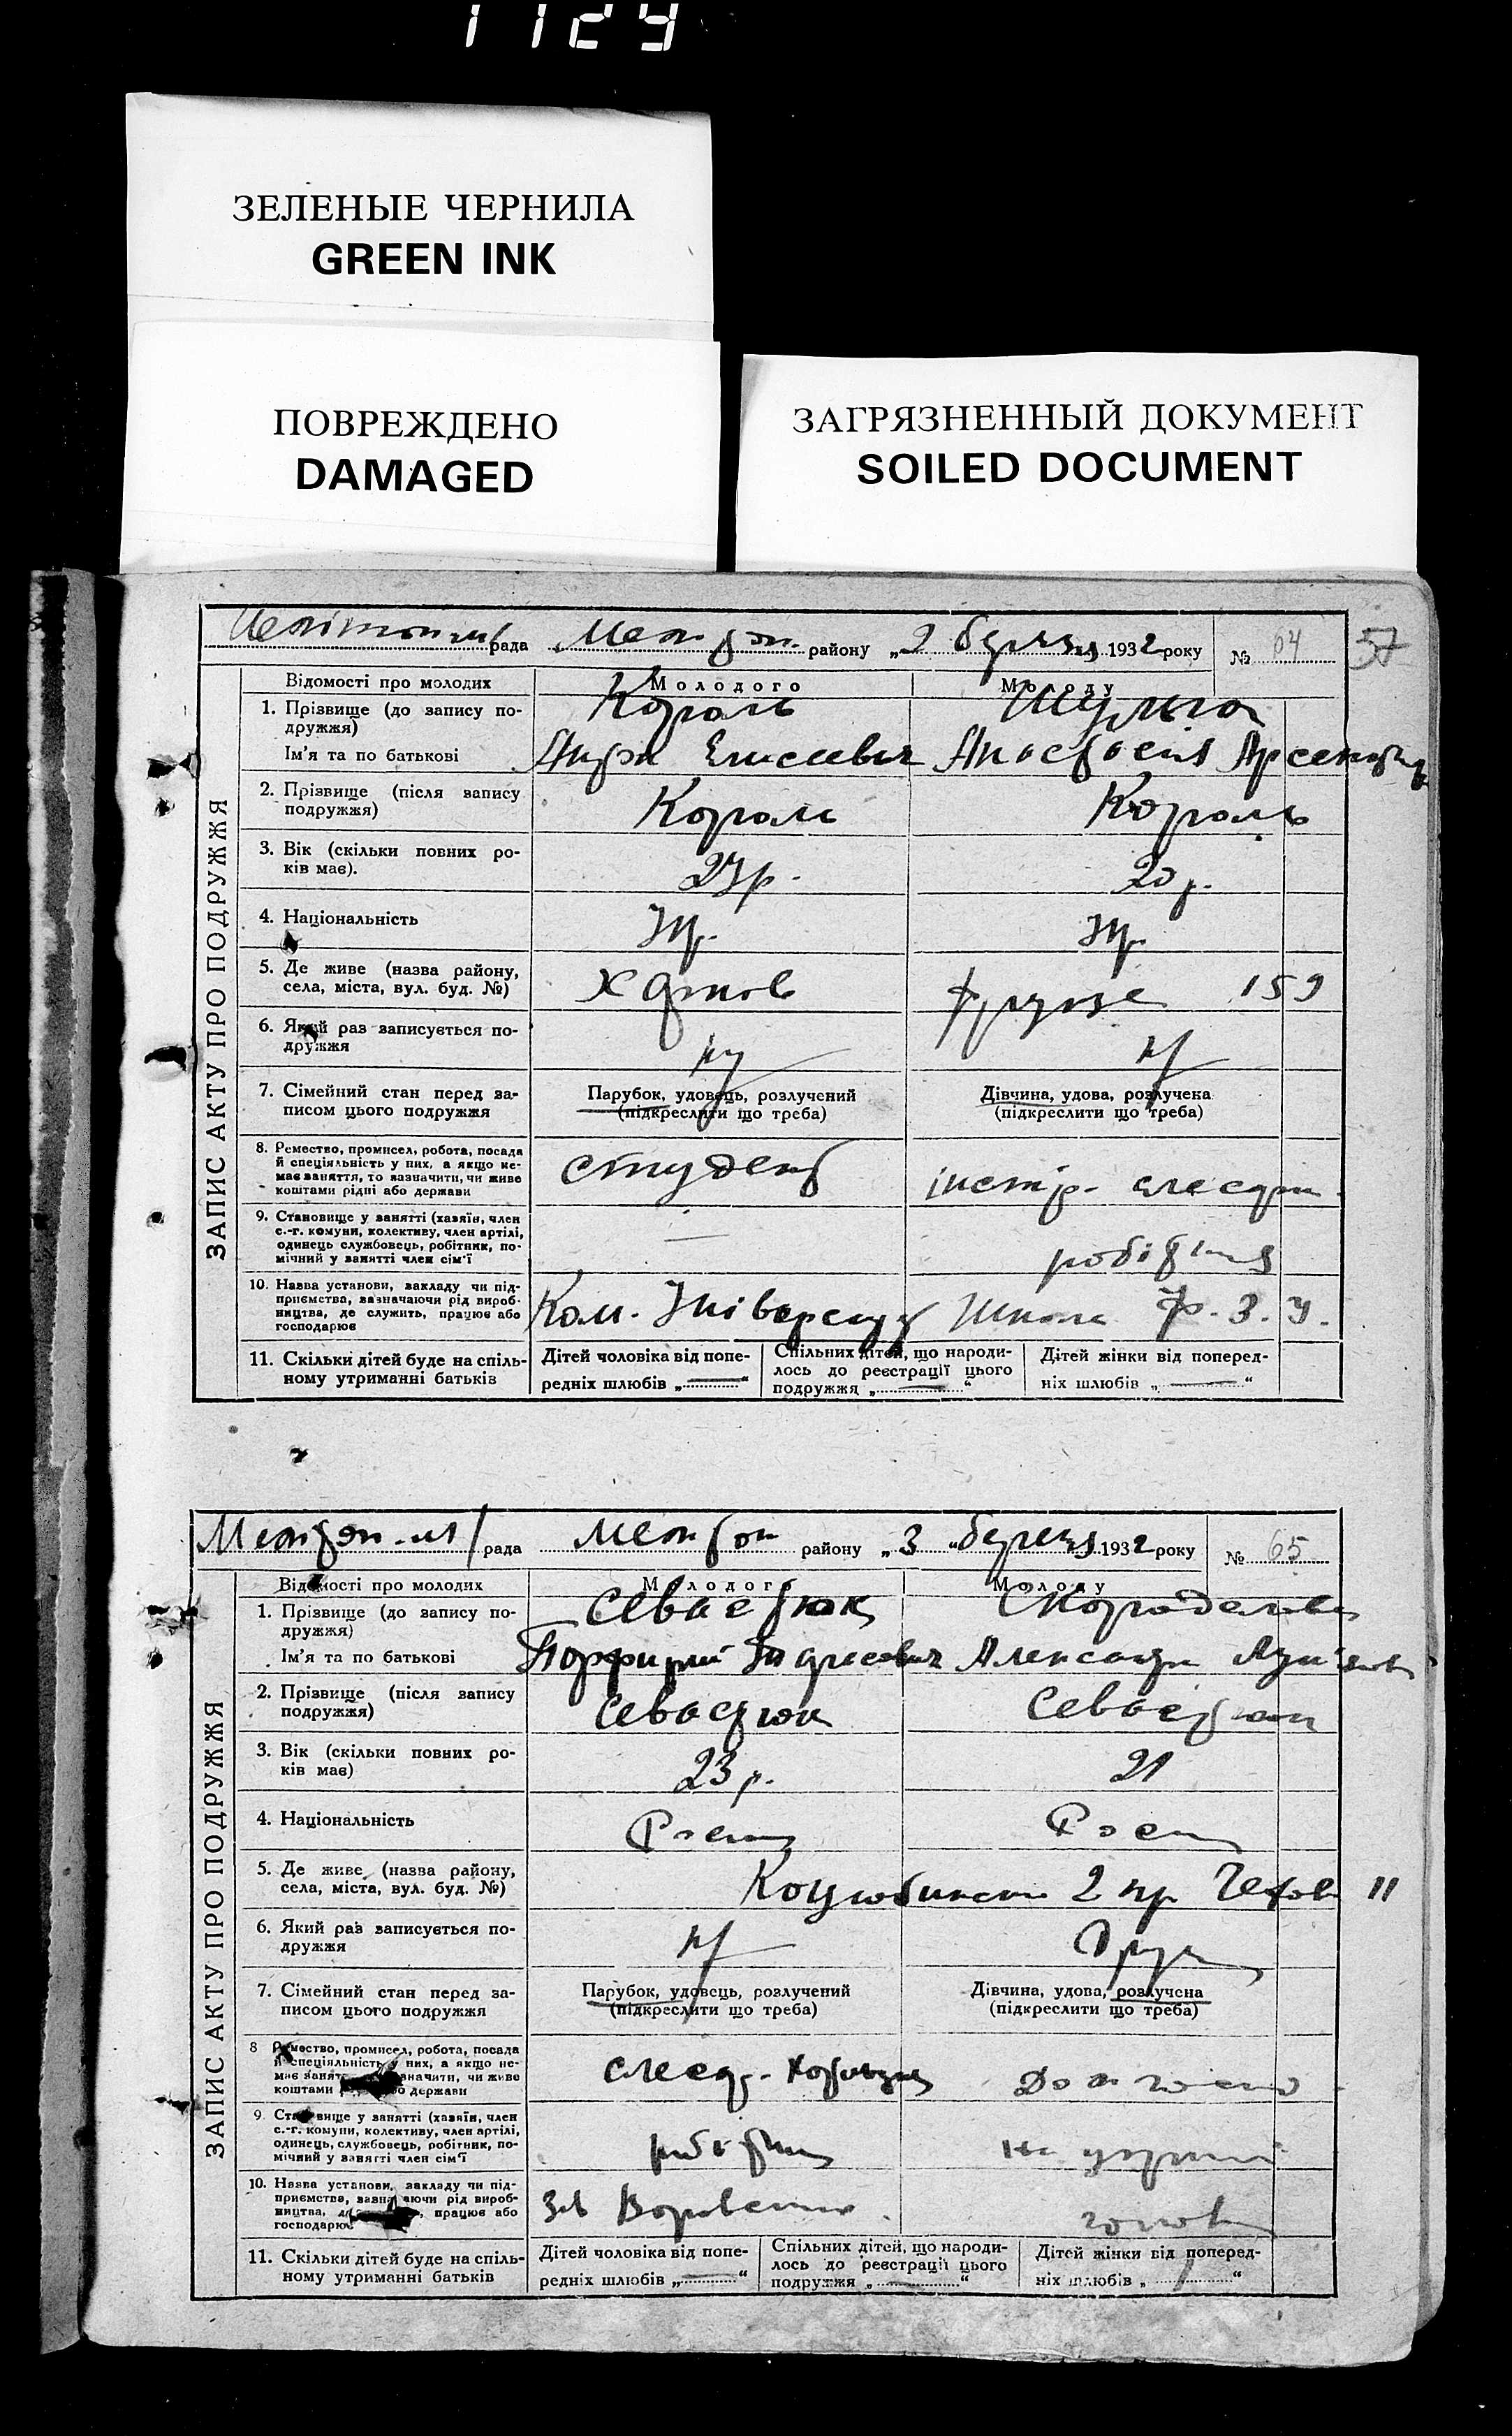 1129
ЗЕЛЕНЫЕ ЧЕРНИЛА
GREEN INK
ПОВРЕЖДЕНО
DAMAGED
ЗАГРЯЗНЕННЫЙ ДОКУМЕНТ
SOILED DOCUMENT
рада району „2 березня 1932 року № 57
ЗАПИС АКТУ ПРО ПОДРУЖЖЯ
Відомості про молодих Молодого Молоду
1. Прізвище (до запису по- Король Шульга
дружжя)
Ім'я та по батькові Елисеевич Анастасія
2. Прізвище (після запису Король Король
подружжя)
3. Вік (скільки повних ро- 23р. 20 р.
ків має).
4. Національність Укр. Укр.
5. Де живе (назва району, Харьков Фрунзе 159
села, міста, вул. буд. №)
6. Який раз записується по-
дружжя
7. Сімейний стан перед за- Парубок, удовець, розлучений Дівчина, удова, розлучена
писом цього подружжя (підкреслити що треба) (підкреслити що треба)
8. Ремество, промисел, робота, посада студент інстр. слюсарн.
й спеціяльність у них, а якщо не-
має заняття, то зазначити, чи живе
коштами рідні або держави
9. Становище у занятті (хазяїн, член — робітниця
с.-г. комуни, колективу, член артілі,
одинець службовець, робітник, по-
мічний у занятті член сім'ї
10. Назва установи, закладу чи під- Ком. Університет Школа Ф. З. У.
приємства, зазначаючи рід вироб-
ництва, де служить, працює або
господарює
11. Скільки дітей буде на спіль- Дітей чоловіка від попе- Спільних дітей, що народи- Дітей жінки від поперед-
ному утриманні батьків редніх шлюбів „—“ лось до реєстрації цього ніх шлюбів „—“
подружжя „—“
рада району „3“ березня 1932 року № 65
ЗАПИС АКТУ ПРО ПОДРУЖЖЯ
Відомості про молодих Молодого Молоду
1. Прізвище (до запису по- Севастюк
дружжя)
Ім'я та по батькові Порфирий Александра
2. Прізвище (після запису Севастюк Севастюк
подружжя)
3. Вік (скільки повних ро- 23 р. 21
ків має)
4. Національність Росиц Росиц
5. Де живе (назва району, Коцюбинськ 2 пр. 11
села, міста, вул. буд. №)
6. Який раз записується по- Друг
дружжя
7. Сімейний стан перед за- Парубок, удовець, розлучений Дівчина, удова, розлучена
писом цього подружжя (підкреслити що треба) (підкреслити що треба)
8 Ремество, промисел, робота, посада
й спеціяльність у них, а якщо не-
має занят значити, чи живе
коштами або держави
9. Становище у занятті (хазяїн, член робітник
с.-г. комуни, колективу, член артілі,
одинець, службовець, робітник, по-
мічний у занятті член сім'ї
10. Назва установи, закладу чи під- Зав
приємства, зазначаючи рід вироб-
ництва, працює або
господарює
11. Скільки дітей буде на спіль- Дітей чоловіка від попе- Спільних дітей, що народи- Дітей жінки від поперед-
ному утриманні батьків редніх шлюбів „—“ лось до реєстрації цього ніх шлюбів „ “
подружжя „—“